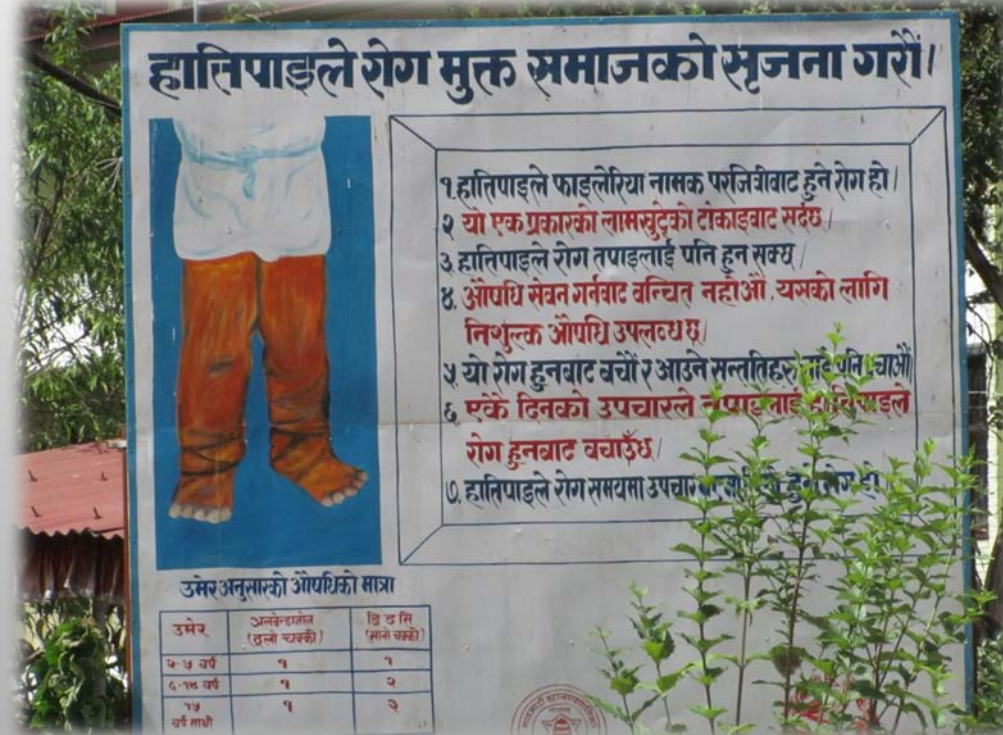 हातिपाइले रोग मुक्त समाजको सृजना गरौं।
१. हातिपाइले फाइलेरिया नामक परजिवीबाट हुने रोग हो।
२ यो एक प्रकारको लामखुट्टेको टोकाइबाट सर्दछ।
३. हातिपाइले रोग तपाइलाई पनि हुन सक्छ।
४. औषधि सेवन गर्नबाट वन्चित नहोऔं. यसको लागि
निशुल्क औषधि उपलब्ध छ।
५. यो रोग हुनबाट बचौं र आउने सन्ततिहरु पनि बचाऔं।
६ एकै दिनको उपचारले तपाइलाई हातिपाइले
रोग हुनबाट बचाउँछ।
७. हातिपाइले रोग समयमा उपचार रोग हो
उमेर अनुसारको औषधिको मात्रा
उमेर अलबेन्डाजोल डि इ सि
(ठूलो चक्की) (सानो चक्की)
२-५ वर्ष १ १
६-१४ वर्ष १ २
१५ १ ३
वर्ष माथी